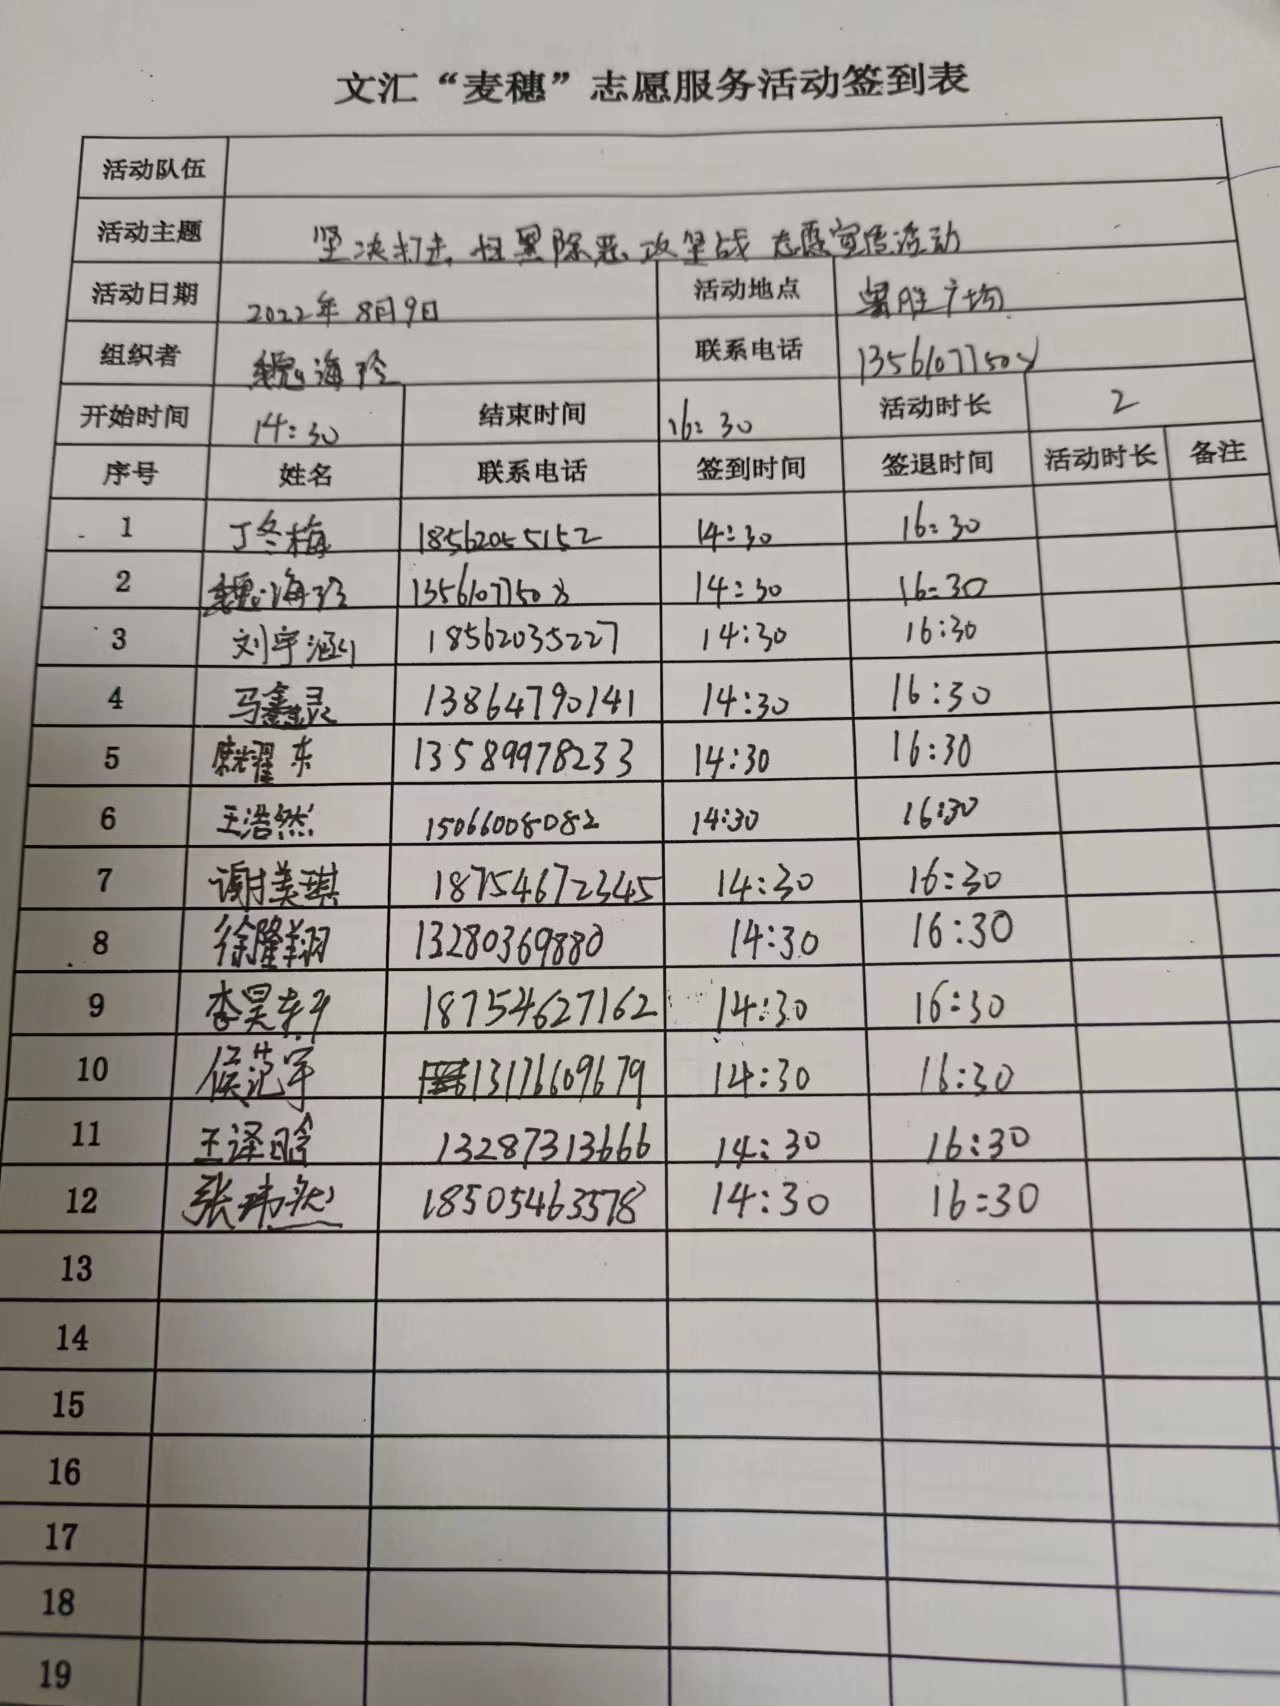 文汇“麦穗”志愿服务活动签到表
活动队伍
活动主题 坚决打击 扫黑除恶攻坚战 志愿宣传活动
活动日期 2022年8月9日 活动地点 广场
组织者 魏海玲 联系电话 13561077508
开始时间 14:30 结束时间 16:30 活动时长 2
序号 姓名 联系电话 签到时间 签退时间 活动时长 备注
1 丁冬梅 18562055152 14:30 16:30
2 魏海玲 13561077508 14:30 16:30
3 刘宇涵 18562035227 14:30 16:30
4 马鑫灵 13864790141 14:30 16:30
5 耀东 13589978233 14:30 16:30
6 王浩然 15066008082 14:30 16:30
7 谢美琪 18754672345 14:30 16:30
8 徐隆翔 13280369880 14:30 16:30
9 李昊 18754627162 14:30 16:30
10 侯范军 13176609679 14:30 16:30
11 王译晗 13287313666 14:30 16:30
12 张玮 18505463578 14:30 16:30
13
14
15
16
17
18
19